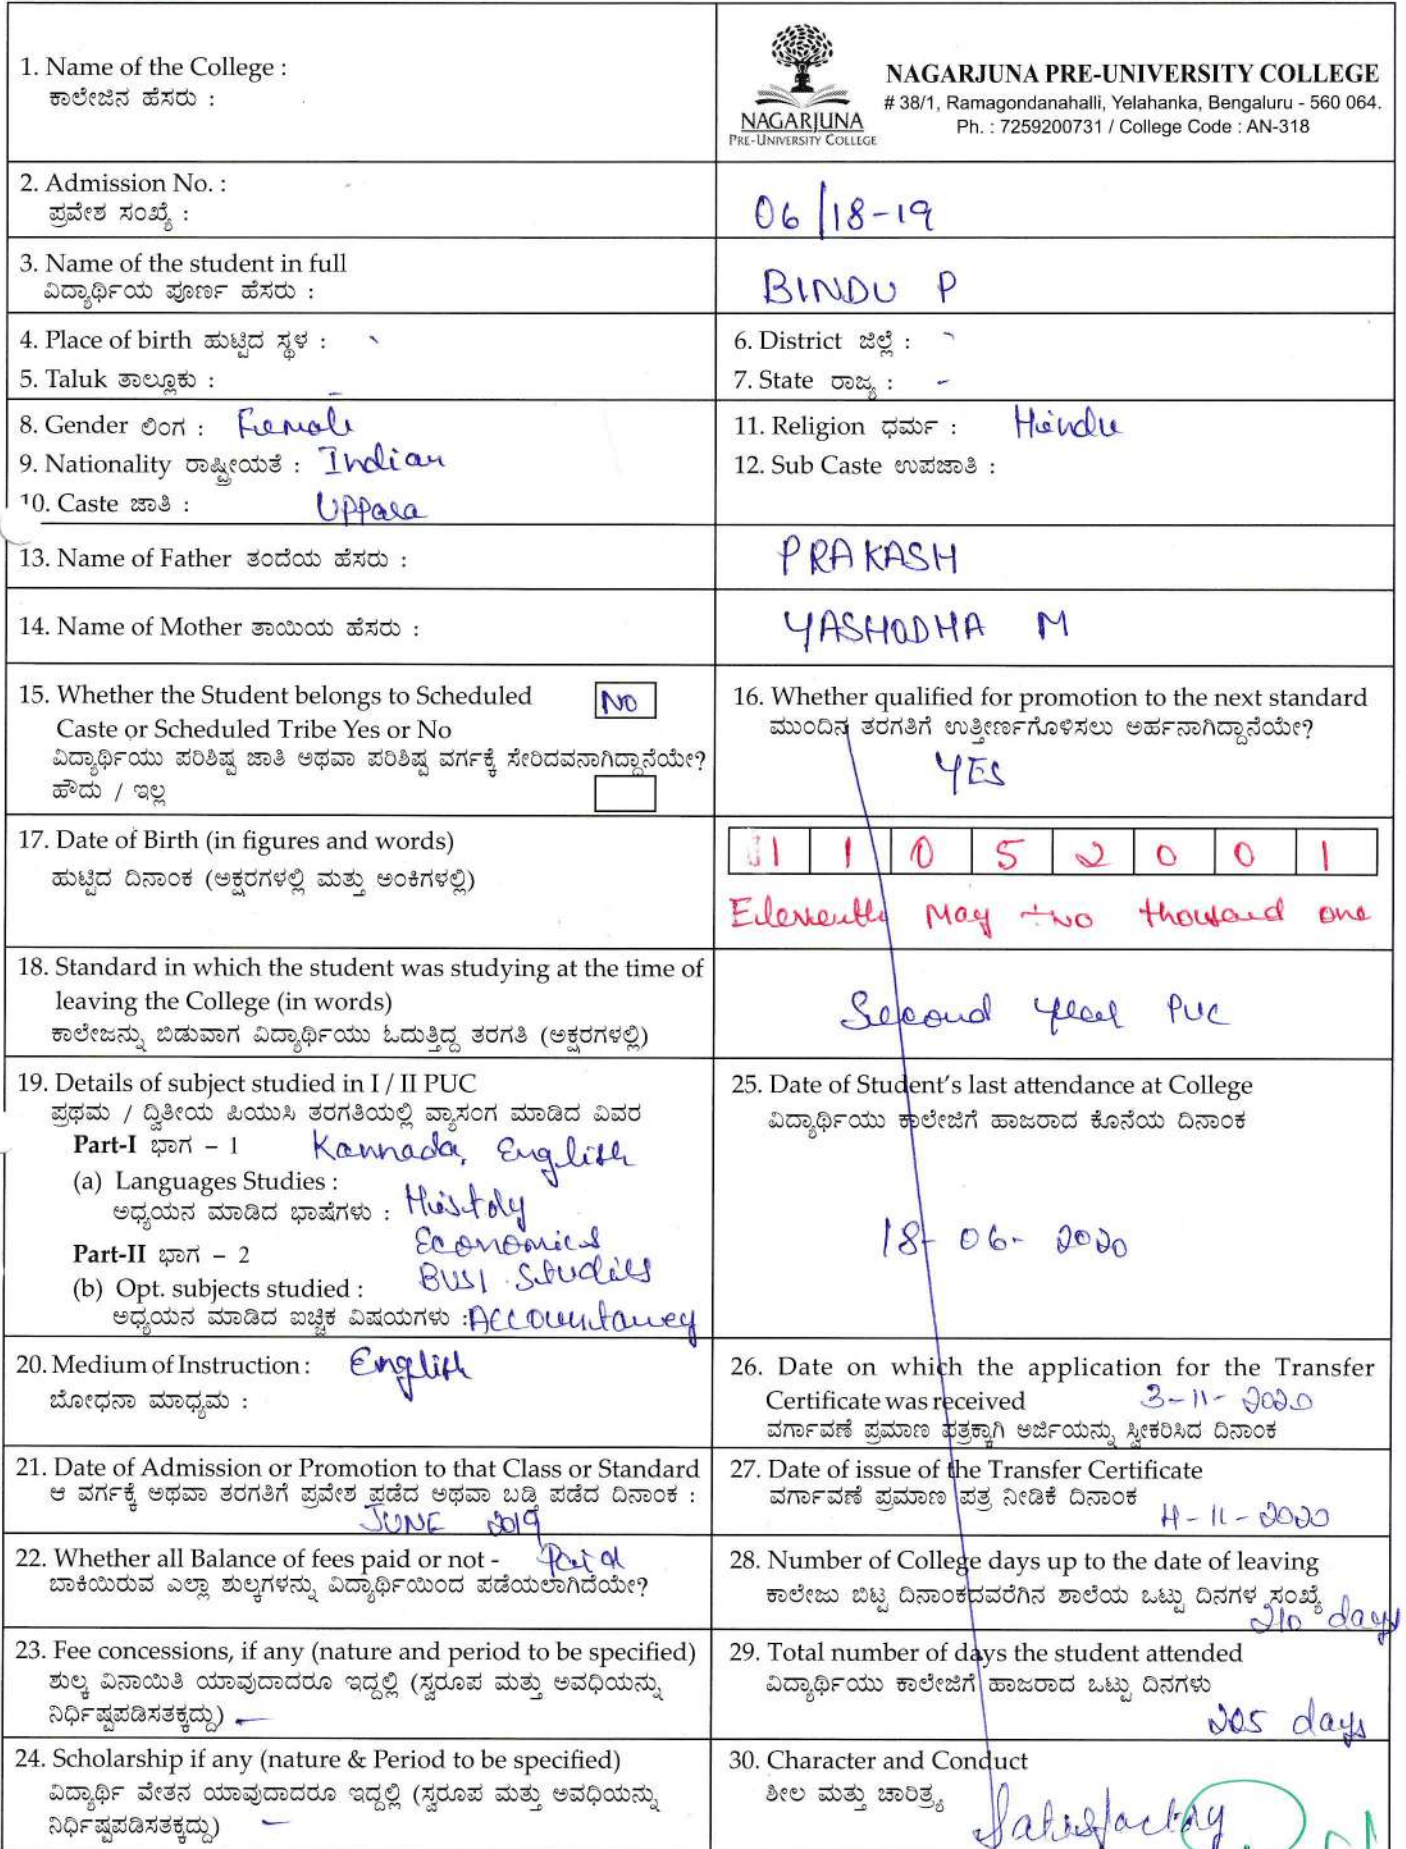 1. Name of the College :
ಕಾಲೇಜಿನ ಹೆಸರು :
NAGARJUNA
PRE-UNIVERSITY COLLEGE
NAGARJUNA PRE-UNIVERSITY COLLEGE
# 38/1, Ramagondanahalli, Yelahanka, Bengaluru - 560 064.
Ph. : 7259200731 / College Code : AN-318
2. Admission No. :
ಪ್ರವೇಶ ಸಂಖ್ಯೆ :
06/18-19
3. Name of the student in full
ವಿದ್ಯಾರ್ಥಿಯ ಪೂರ್ಣ ಹೆಸರು :
BINDU P
4. Place of birth ಹುಟ್ಟಿದ ಸ್ಥಳ :
5. Taluk ತಾಲ್ಲೂಕು : -
6. District ಜಿಲ್ಲೆ :
7. State ರಾಜ್ಯ : -
8. Gender ಲಿಂಗ : Female
9. Nationality ರಾಷ್ಟ್ರೀಯತೆ : Indian
10. Caste ಜಾತಿ : Uppara
11. Religion ಧರ್ಮ : Hindu
12. Sub Caste ಉಪಜಾತಿ :
13. Name of Father ತಂದೆಯ ಹೆಸರು :
PRAKASH
14. Name of Mother ತಾಯಿಯ ಹೆಸರು :
YASHODHA M
15. Whether the Student belongs to Scheduled NO
Caste or Scheduled Tribe Yes or No
ವಿದ್ಯಾರ್ಥಿಯು ಪರಿಶಿಷ್ಟ ಜಾತಿ ಅಥವಾ ಪರಿಶಿಷ್ಟ ವರ್ಗಕ್ಕೆ ಸೇರಿದವನಾಗಿದ್ದಾನೆಯೇ?
ಹೌದು / ಇಲ್ಲ
16. Whether qualified for promotion to the next standard
ಮುಂದಿನ ತರಗತಿಗೆ ಉತ್ತೀರ್ಣಗೊಳಿಸಲು ಅರ್ಹನಾಗಿದ್ದಾನೆಯೇ?
YES
17. Date of Birth (in figures and words)
ಹುಟ್ಟಿದ ದಿನಾಂಕ (ಅಕ್ಷರಗಳಲ್ಲಿ ಮತ್ತು ಅಂಕಿಗಳಲ್ಲಿ)
1 1 0 5 2 0 0 1
Eleventh May two thousand one
18. Standard in which the student was studying at the time of
leaving the College (in words)
ಕಾಲೇಜನ್ನು ಬಿಡುವಾಗ ವಿದ್ಯಾರ್ಥಿಯು ಓದುತ್ತಿದ್ದ ತರಗತಿ (ಅಕ್ಷರಗಳಲ್ಲಿ)
Second year PUC
19. Details of subject studied in I / II PUC
ಪ್ರಥಮ / ದ್ವಿತೀಯ ಪಿಯುಸಿ ತರಗತಿಯಲ್ಲಿ ವ್ಯಾಸಂಗ ಮಾಡಿದ ವಿವರ
Part-I ಭಾಗ – 1 Kannada, English
(a) Languages Studies :
ಅಧ್ಯಯನ ಮಾಡಿದ ಭಾಷೆಗಳು : History
Economics
Part-II ಭಾಗ – 2
(b) Opt. subjects studied : BUSI. Studies
ಅಧ್ಯಯನ ಮಾಡಿದ ಐಚ್ಛಿಕ ವಿಷಯಗಳು : Accountancy
25. Date of Student's last attendance at College
ವಿದ್ಯಾರ್ಥಿಯು ಕಾಲೇಜಿಗೆ ಹಾಜರಾದ ಕೊನೆಯ ದಿನಾಂಕ
18-06-2020
20. Medium of Instruction : English
ಬೋಧನಾ ಮಾಧ್ಯಮ :
26. Date on which the application for the Transfer
Certificate was received 3-11-2020
ವರ್ಗಾವಣೆ ಪ್ರಮಾಣ ಪತ್ರಕ್ಕಾಗಿ ಅರ್ಜಿಯನ್ನು ಸ್ವೀಕರಿಸಿದ ದಿನಾಂಕ
21. Date of Admission or Promotion to that Class or Standard
ಆ ವರ್ಗಕ್ಕೆ ಅಥವಾ ತರಗತಿಗೆ ಪ್ರವೇಶ ಪಡೆದ ಅಥವಾ ಬಡ್ತಿ ಪಡೆದ ದಿನಾಂಕ :
JUNE 2019
27. Date of issue of the Transfer Certificate
ವರ್ಗಾವಣೆ ಪ್ರಮಾಣ ಪತ್ರ ನೀಡಿಕೆ ದಿನಾಂಕ
4-11-2020
22. Whether all Balance of fees paid or not - Paid
ಬಾಕಿಯಿರುವ ಎಲ್ಲಾ ಶುಲ್ಕಗಳನ್ನು ವಿದ್ಯಾರ್ಥಿಯಿಂದ ಪಡೆಯಲಾಗಿದೆಯೇ?
28. Number of College days up to the date of leaving
ಕಾಲೇಜು ಬಿಟ್ಟ ದಿನಾಂಕದವರೆಗಿನ ಶಾಲೆಯ ಒಟ್ಟು ದಿನಗಳ ಸಂಖ್ಯೆ
210 days
23. Fee concessions, if any (nature and period to be specified)
ಶುಲ್ಕ ವಿನಾಯಿತಿ ಯಾವುದಾದರೂ ಇದ್ದಲ್ಲಿ (ಸ್ವರೂಪ ಮತ್ತು ಅವಧಿಯನ್ನು
ನಿರ್ಧಿಷ್ಟಪಡಿಸತಕ್ಕದ್ದು) -
29. Total number of days the student attended
ವಿದ್ಯಾರ್ಥಿಯು ಕಾಲೇಜಿಗೆ ಹಾಜರಾದ ಒಟ್ಟು ದಿನಗಳು
205 days
24. Scholarship if any (nature & Period to be specified)
ವಿದ್ಯಾರ್ಥಿ ವೇತನ ಯಾವುದಾದರೂ ಇದ್ದಲ್ಲಿ (ಸ್ವರೂಪ ಮತ್ತು ಅವಧಿಯನ್ನು
ನಿರ್ಧಿಷ್ಟಪಡಿಸತಕ್ಕದ್ದು) -
30. Character and Conduct
ಶೀಲ ಮತ್ತು ಚಾರಿತ್ರ್ಯ
Satisfactory